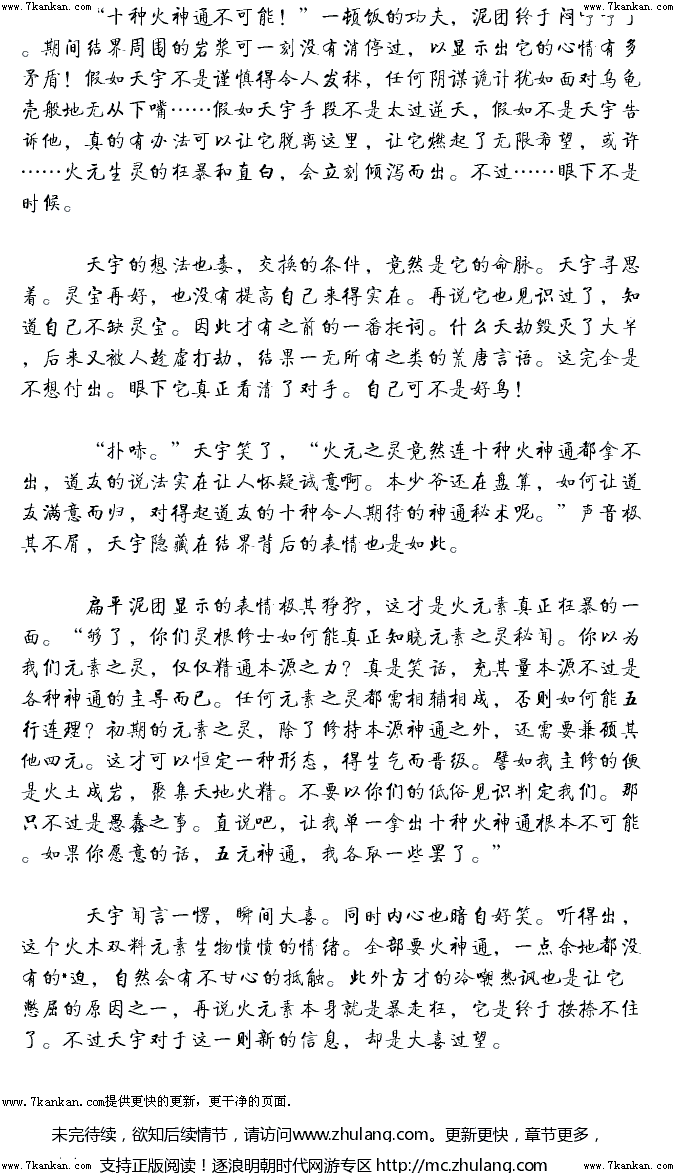 www.7kankan.com www.7kankan.com
“十种火神通不可能！”一顿饭的功夫，泥团终于闷
。期间结界周围的岩浆可一刻没有消停过，以显示出它的心情有多
矛盾！假如天宇不是谨慎得令人发秫，任何阴谋诡计犹如面对乌龟
壳般地无从下嘴……假如天宇手段不是太过逆天，假如不是天宇告
诉他，真的有办法可以让它脱离这里，让它燃起了无限希望，或许
……火元生灵的狂暴和直白，会立刻倾泻而出。不过……眼下不是
时候。
天宇的想法也毒，交换的条件，竟然是它的命脉。天宇寻思
着。灵宝再好，也没有提高自己来得实在。再说它也见识过了，知
道自己不缺灵宝。因此才有之前的一番托词。什么天劫毁灭了大半
，后来又被人趁虚打劫，结果一无所有之类的荒唐言语。这完全是
不想付出。眼下它真正看清了对手。自己可不是好鸟！
“扑哧。”天宇笑了，“火元之灵竟然连十种火神通都拿不
出，道友的说法实在让人怀疑诚意啊。本少爷还在盘算，如何让道
友满意而归，对得起道友的十种令人期待的神通秘术呢。”声音极
其不屑，天宇隐藏在结界背后的表情也是如此。
扁平泥团显示的表情极其狰狞，这才是火元素真正狂暴的一
面。“够了，你们灵根修士如何能真正知晓元素之灵秘闻。你以为
我们元素之灵，仅仅精通本源之力？真是笑话，充其量本源不过是
各种神通的主导而已。任何元素之灵都需相辅相成，否则如何能五
行连理？初期的元素之灵，除了修持本源神通之外，还需要兼顾其
他四元。这才可以恒定一种形态，得生气而晋级。譬如我主修的便
是火土成岩，聚集天地火精。不要以你们的低俗见识判定我们。那
只不过是愚蠢之事。直说吧，让我单一拿出十种火神通根本不可能
。如果你愿意的话，五元神通，我各取一些罢了。”
天宇闻言一愣，瞬间大喜。同时内心也暗自好笑。听得出，
这个火木双料元素生物愤愤的情绪。全部要火神通，一点余地都没
有的*迫，自然会有不甘心的抵触。此外方才的冷嘲热讽也是让它
憋屈的原因之一，再说火元素本身就是暴走狂，它是终于按捺不住
了。不过天宇对于这一则新的信息，却是大喜过望。
www.7kankan.com提供更快的更新，更干净的页面.
未完待续，欲知后续情节，请访问www.zhulang.com。更新更快，章节更多，
支持正版阅读！逐浪明朝时代网游专区 http://mc.zhulang.com
www.7kankan.com www.7kankan.com